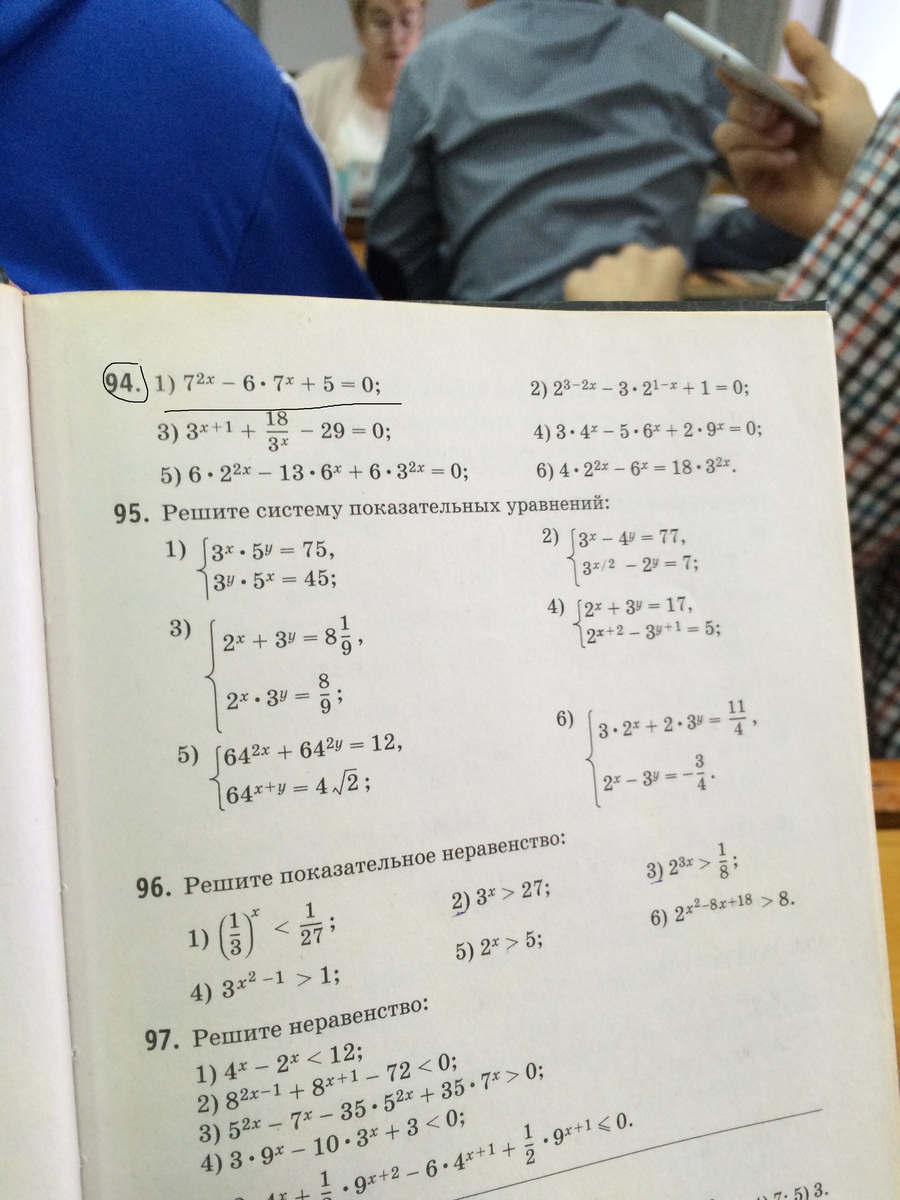 94. 1) 7²ˣ − 6 · 7ˣ + 5 = 0; 2) 2³⁻²ˣ − 3 · 2¹⁻ˣ + 1 = 0;
3) 3ˣ⁺¹ + 18/3ˣ − 29 = 0; 4) 3 · 4ˣ − 5 · 6ˣ + 2 · 9ˣ = 0;
5) 6 · 2²ˣ − 13 · 6ˣ + 6 · 3²ˣ = 0; 6) 4 · 2²ˣ − 6ˣ = 18 · 3²ˣ.
95. Решите систему показательных уравнений:
1) { 3ˣ · 5ʸ = 75,
3ʸ · 5ˣ = 45;
2) { 3ˣ − 4ʸ = 77,
3^(x/2) − 2ʸ = 7;
3) { 2ˣ + 3ʸ = 8 1/9,
2ˣ · 3ʸ = 8/9;
4) { 2ˣ + 3ʸ = 17,
2ˣ⁺² − 3ʸ⁺¹ = 5;
5) { 64²ˣ + 64²ʸ = 12,
64ˣ⁺ʸ = 4√2;
6) { 3 · 2ˣ + 2 · 3ʸ = 11/4,
2ˣ − 3ʸ = −3/4.
96. Решите показательное неравенство:
1) (1/3)ˣ < 1/27; 2) 3ˣ > 27; 3) 2³ˣ > 1/8;
4) 3^(x²−1) > 1; 5) 2ˣ > 5; 6) 2^(x²−8x+18) > 8.
97. Решите неравенство:
1) 4ˣ − 2ˣ < 12;
2) 8²ˣ⁻¹ + 8ˣ⁺¹ − 72 < 0;
3) 5²ˣ − 7ˣ − 35 · 5²ˣ + 35 · 7ˣ > 0;
4) 3 · 9ˣ − 10 · 3ˣ + 3 < 0;
4ˣ + · 9ˣ⁺² − 6 · 4ˣ⁺¹ + 1/2 · 9ˣ⁺¹ ⩽ 0.
7; 5) 3.